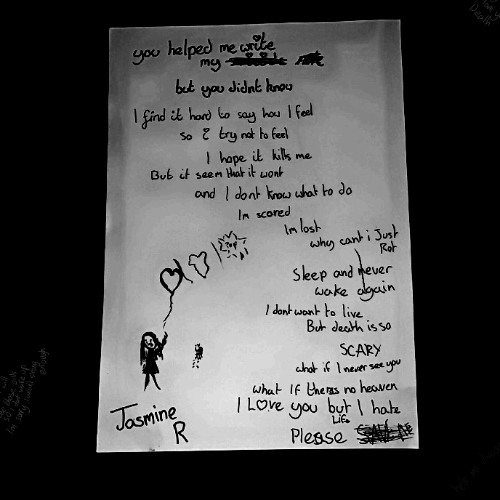 you helped me write
my
but you didnt know
I find it hard to say how I feel
so i try not to feel
I hope it kills me
But it seem that it wont
and I dont know what to do
Im scared
Im lost
why cant i Just
Rot
Sleep and never
wake again
I dont want to live
But death is so
SCARY
what if I never see you
what If theres no heaven
I LOve you but I hate
Life
Please
Pop
Jasmine
R